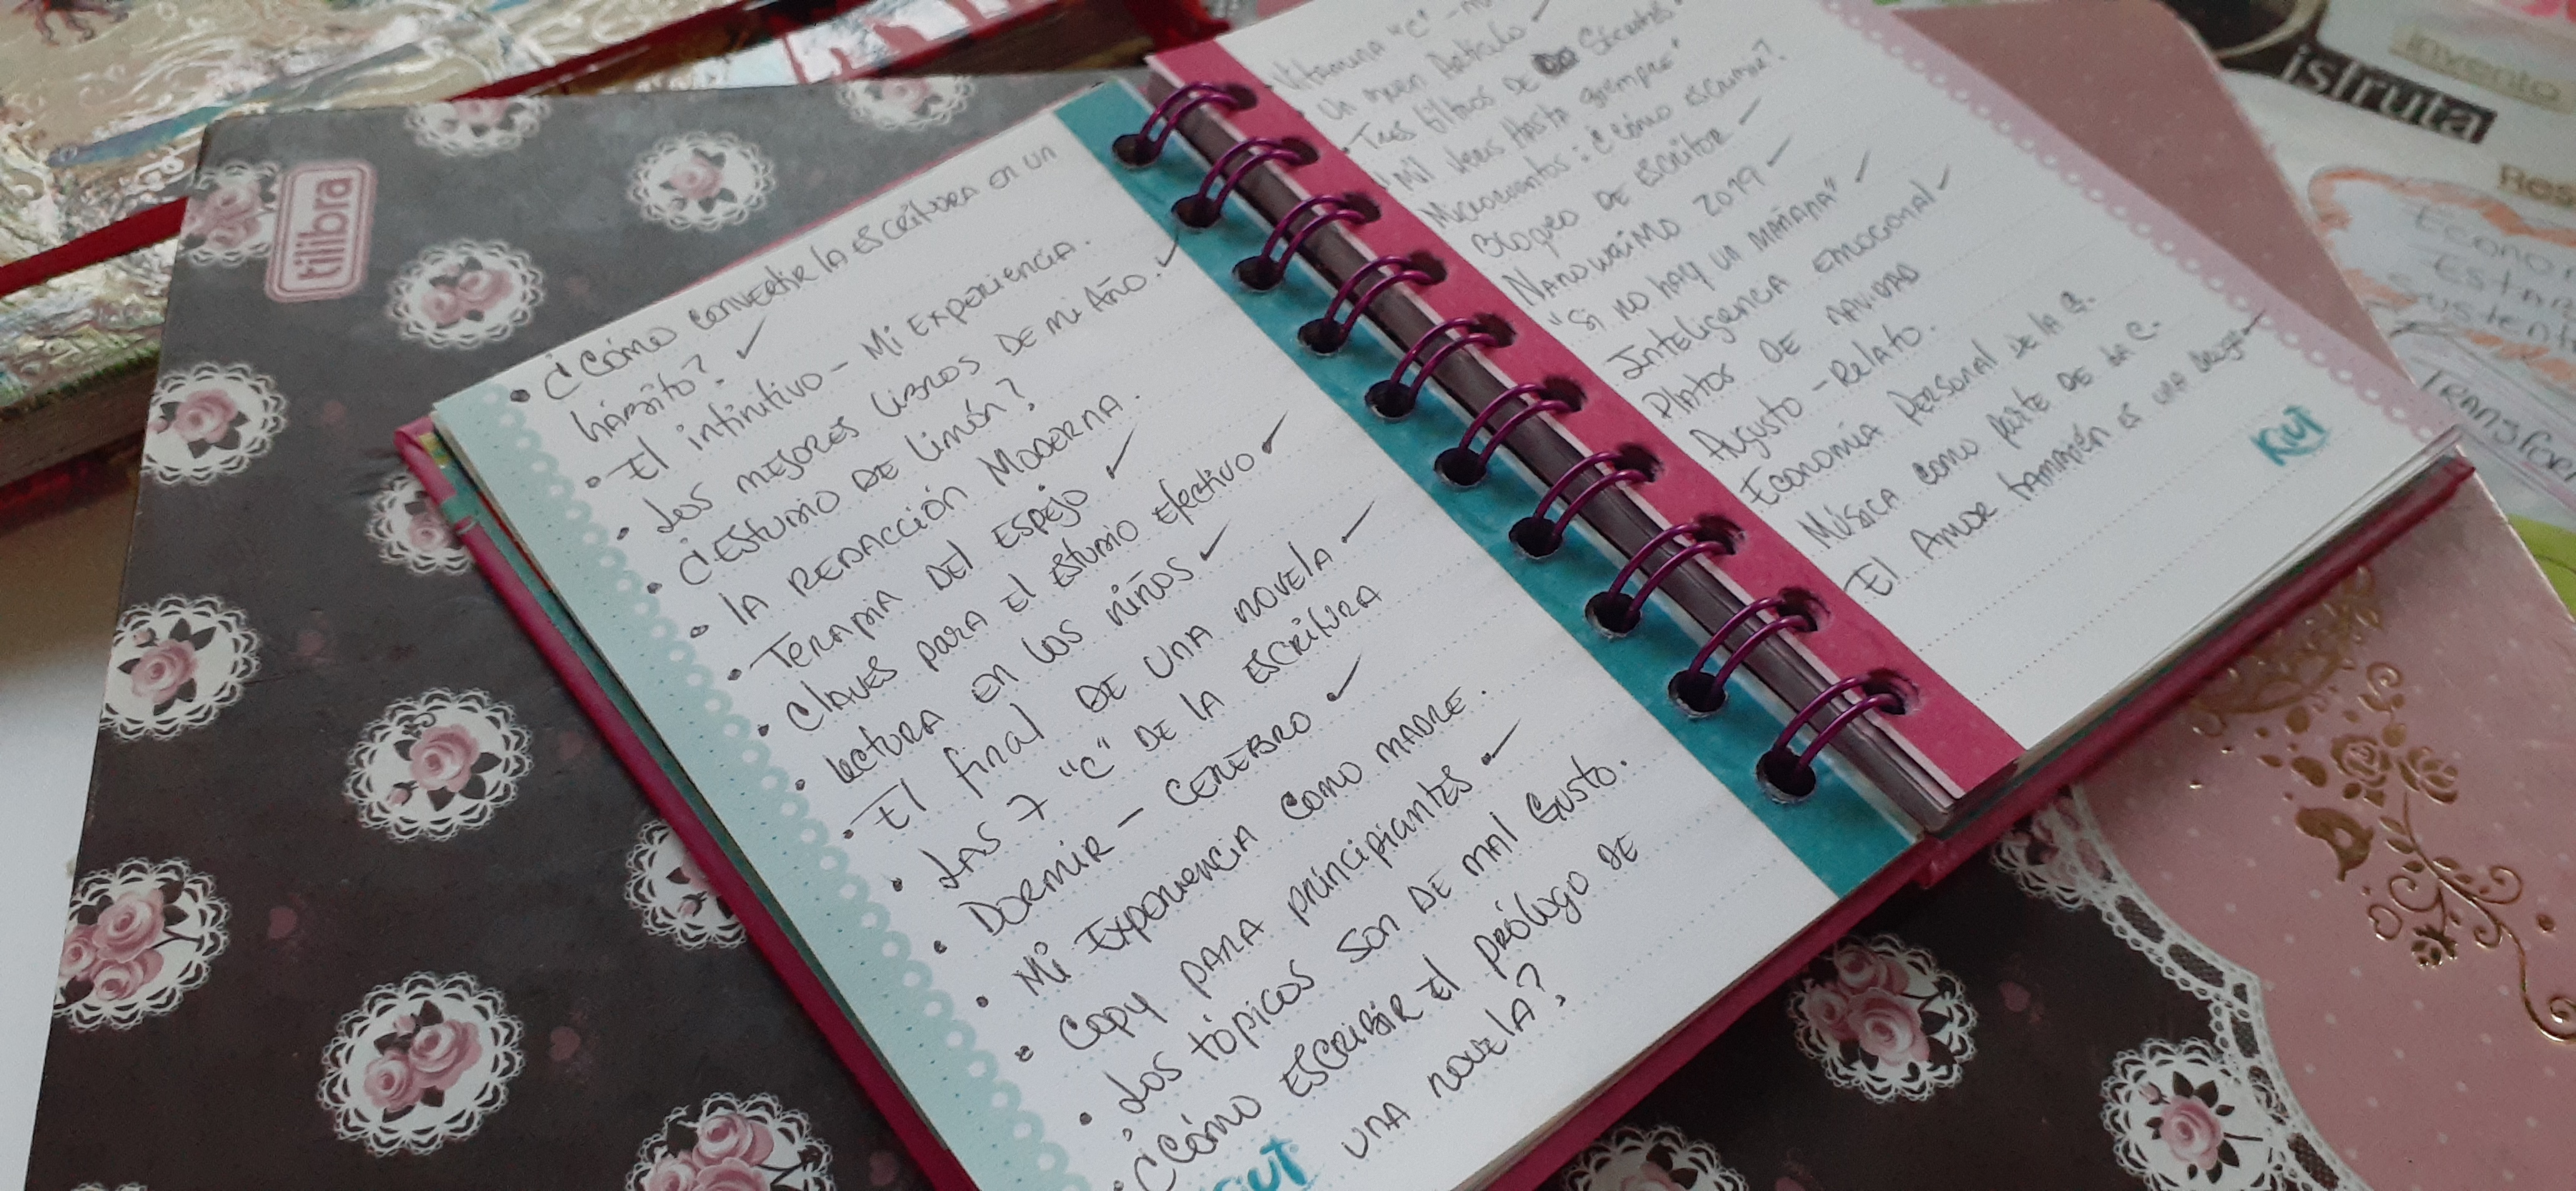 tilibra
• ¿Cómo convertir la escritura en un
hábito? ✓
• El infinitivo – Mi Experiencia.
• Los mejores libros de mi Año. ✓
• ¿Estudio de limón?
• la redacción Moderna.
• Terapia del espejo ✓
• Claves para el estudio efectivo ✓
• lectura en los niños ✓
• El final de una novela ✓
• Las 7 "C" de la escritura
• Dormir – Cerebro ✓
• Mi Experiencia como madre.
• Copy para principiantes ✓
• Los tópicos son de mal Gusto.
• ¿Cómo escribir el prólogo de
una novela?
Kiut
• Vitamina "C" –
• Un buen Artículo ✓
• Tres filtros de Sócrates
"Mil veces hasta siempre"
Microcuentos: ¿Cómo escribir?
Bloqueo de escritor ✓
Nanowrimo 2019 ✓
"Si no hay un mañana" ✓
Inteligencia emocional ✓
Platos de navidad
Augusto – Relato.
Economía personal de la Q.
Música como parte de la C.
El Amor también es una
Kiut
isfruta
invento
Res
Econom
Esta
sustent
Transfor